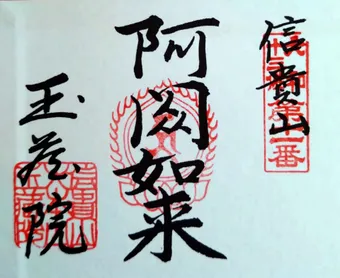 信貴山
阿閦如来
玉蔵院